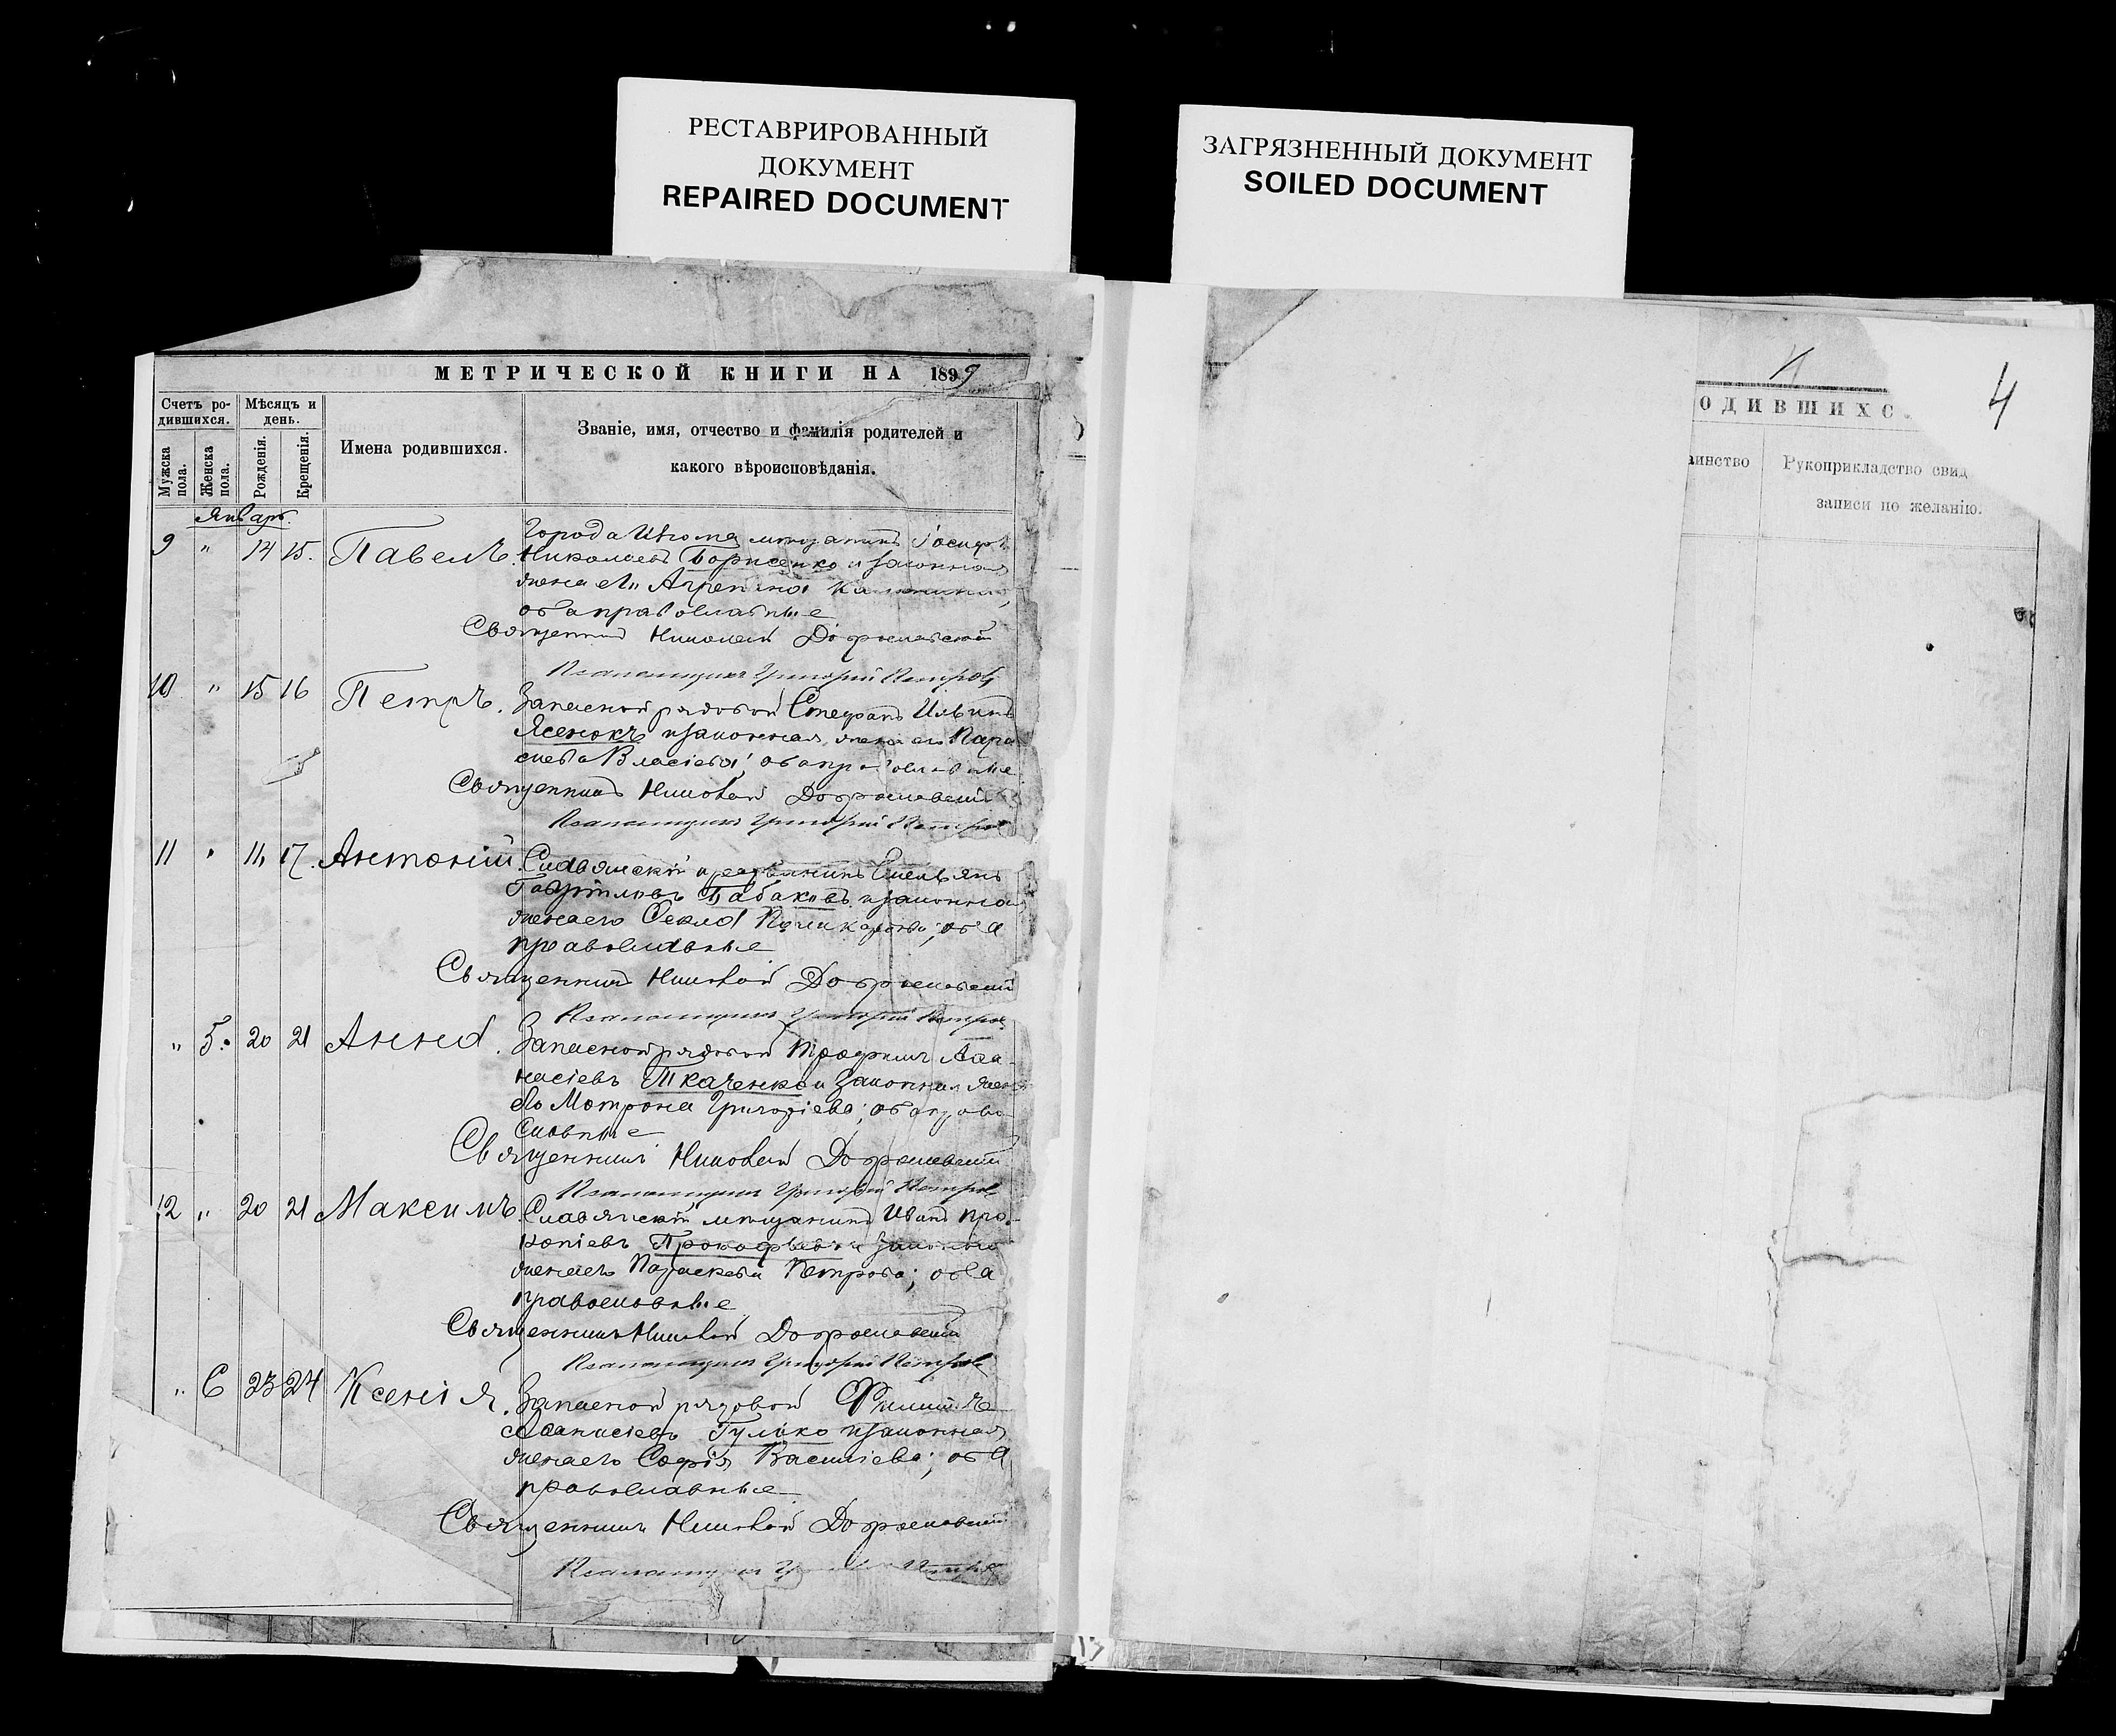 РЕСТАВРИРОВАННЫЙ
ДОКУМЕНТ
REPAIRED DOCUMENT
ЗАГРЯЗНЕННЫЙ ДОКУМЕНТ
SOILED DOCUMENT
МЕТРИЧЕСКОЙ КНИГИ НА 1899
Счетъ ро-
дившихся.
Мѣсяцъ и
день.
Мужска пола.
Женска пола.
Рожденія.
Крещенія.
Имена родившихся.
Званіе, имя, отчество и фамилія родителей и
какого вѣроисповѣданія.
Январь.
9 " 14 15. Павелъ. Города мѣщанинъ
Николаевъ Борисенко и законная
жена его Агрепина
оба православные
Священникъ Николай Доброславский
Псаломщикъ Григорий Петровъ
10 " 15 16 Петръ. Запасной рядовой Стефанъ Ильинъ
Ясенокъ и законная жена его Пара
скева Власіева; оба православные
Священникъ Николай Доброславский
Псаломщикъ Григорий Петровъ
11 " 11, 17. Антоній Славянскій Емельянъ
Гавріиловъ Бабаковъ и законная
жена его Ѳекла оба
православные
Священникъ Николай Доброславский
Псаломщикъ Григорий Петровъ
" 5. 20 21 Анна. Запасной рядовой Трофимъ Аѳа-
насіевъ Ткаченко и законная жена
его Мотрона Григоріева; оба право
славные
Священникъ Николай Доброславский
Псаломщикъ Григорий Петровъ
12 " 20 21 Максимъ. Славянскій мѣщанинъ Иванъ Про-
копіевъ Прокофьевъ и законная
жена его Параскева Петрова; оба
православные
Священникъ Николай Доброславский
Псаломщикъ Григорий Петровъ
" 6 23 24 Ксенія. Запасной рядовой Филиппъ
Аѳанасіевъ Гулько и законная
жена его Софія Василіева; оба
православные
Священникъ Николай Доброславский
Псаломщикъ Петровъ
4
ОДИВШИХС
аинство
Рукоприкладство свид
записи по желанію.